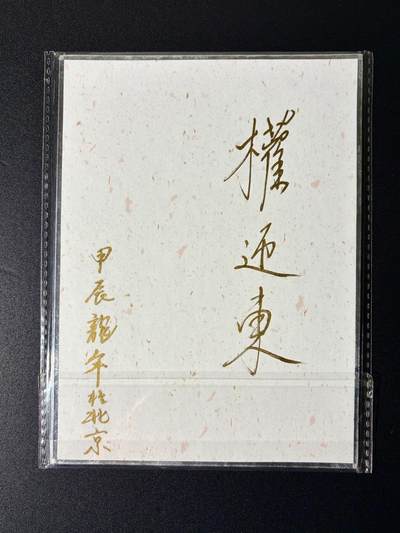 權迎東
甲辰龍年於北京